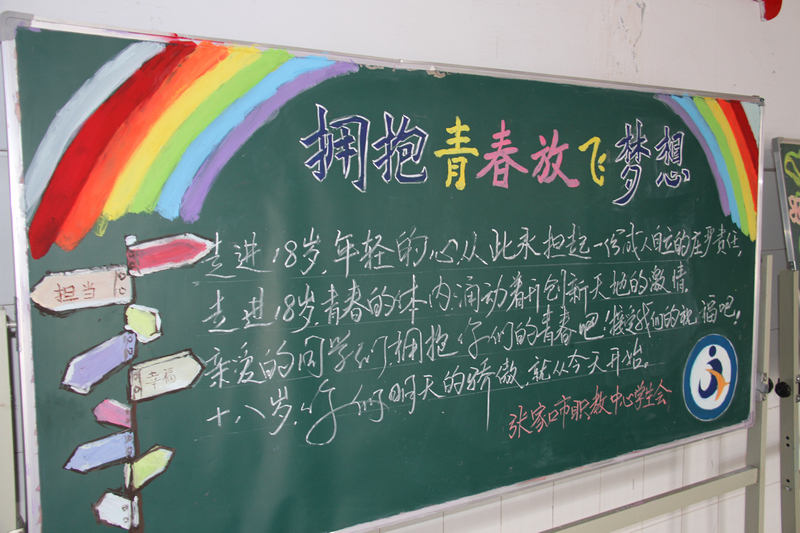 拥抱青春放飞梦想
走进18岁,年轻的心从此承担起一份成人自立的庄严责任,
走进18岁,青春的体内涌动着开创新天地的激情
亲爱的同学们拥抱你们的青春吧,接受我们的祝福吧,
十八岁,你们明天的骄傲,就从今天开始。
张家口市职教中心学生会
担当
幸福